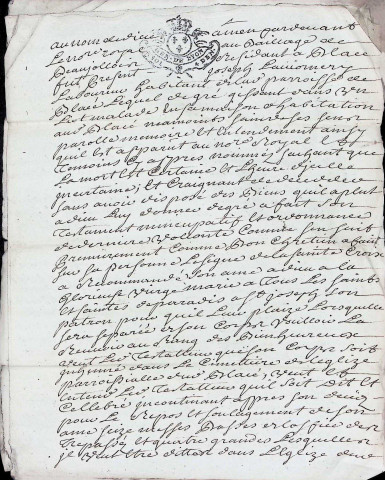 au nom de dieu amen pardevant
Le no.re royal au Bailliage de
Beaujollois résidant a Blacé
fut present Joseph Lavorney
Laboureur habitant de la parroisse de
Blacé Lequel de gré gissant dans son
Lict malade en sa maison d'habitation
aud Blacé neamoints sain de ses sens
parolle memoire et Entendement ainsy
quil est apparut au no.re Royal &
temoins cy appres nommés, sachant que
La mort est Certaine et l'heure d'icelle
jncertaine; et Craignant de deceder
sans avoir disposé des Biens quil a plut
a dieu Luy donner de gré a fait son
testament nuncupatif et ordonnance
de derniere volonté Comme sen suit
Premierement Comme Bon Chretien a fait
sur sa personne Le signe de la sainte Croix
a Recommandé son ame a dieu a la
Glorieuse vierge marie a tous Les saints
et saintes de paradis a st joseph son
patron pour quil Leur plaize Lorsquelle
sera separée de son Corps vouloir La
Recevoir au Rang des Bienheureux
veut Le testateur que son Corps soit
jnhumé dans Le Cimetiere de leglize
parroissialle dud Blacé; veut et
entend Led testateur quil soit dit et
Cellebré incontinant appres son deces
pour Le Repos et soulagement de son
ame seize messes Basses de la
trepassés et quatre grandes Lesquelles
je veut etre dittes dans Leglize dud